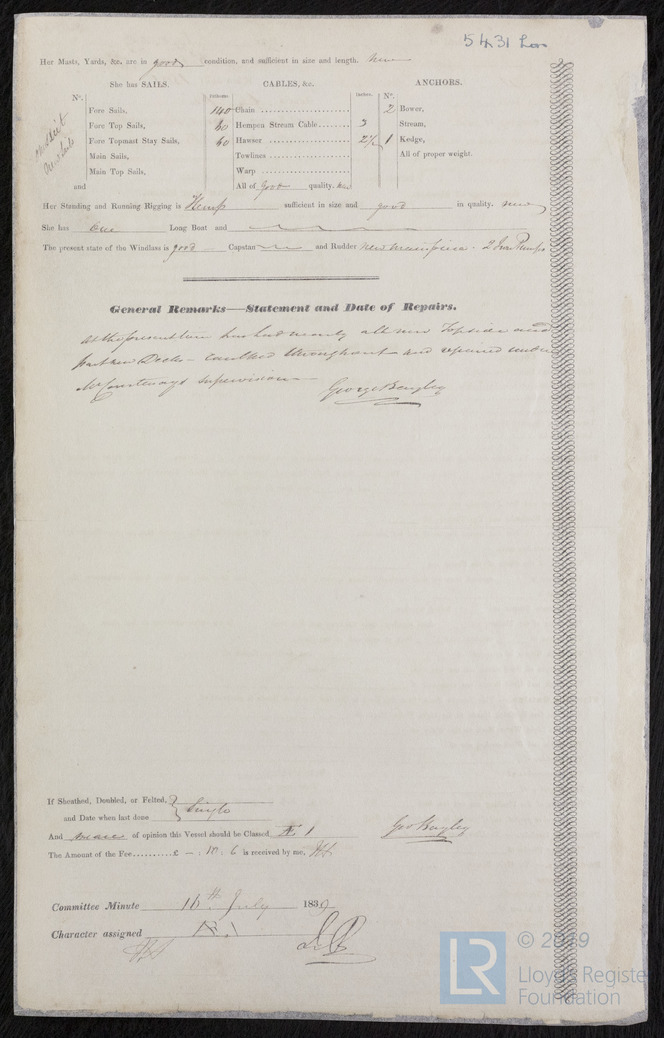 5431 Lon
Her Masts, Yards, &c. are in good condition, and sufficient in size and length. New
She has SAILS. CABLES, &c. ANCHORS.
Nº. Fathoms. Inches. Nº.
Fore Sails, 140 Chain 2 Bower,
Fore Top Sails, 80 Hempen Stream Cable 3 Stream,
Fore Topmast Stay Sails, 60 Hawser 2½ 1 Kedge,
Main Sails, Towlines All of proper weight.
Main Top Sails, Warp
and All of good quality. New
Her Standing and Running Rigging is Hemp sufficient in size and good in quality. New
She has One Long Boat and
The present state of the Windlass is good Capstan and Rudder New mainpiece - 2 Iron Pumps
General Remarks—Statement and Date of Repairs.
has had nearly all new Topsides and
part new Decks - caulked throughout and repaired under
Mr Courtenays supervision
George Bayley
If Sheathed, Doubled, or Felted,
and Date when last done Single
And of opinion this Vessel should be Classed Æ 1 Geo Bayley
The Amount of the Fee.......... £ - : 10 : 6 is received by me,
Committee Minute 16th July 1839
Character assigned
© 2019
Lloyd's Register
Foundation
LR